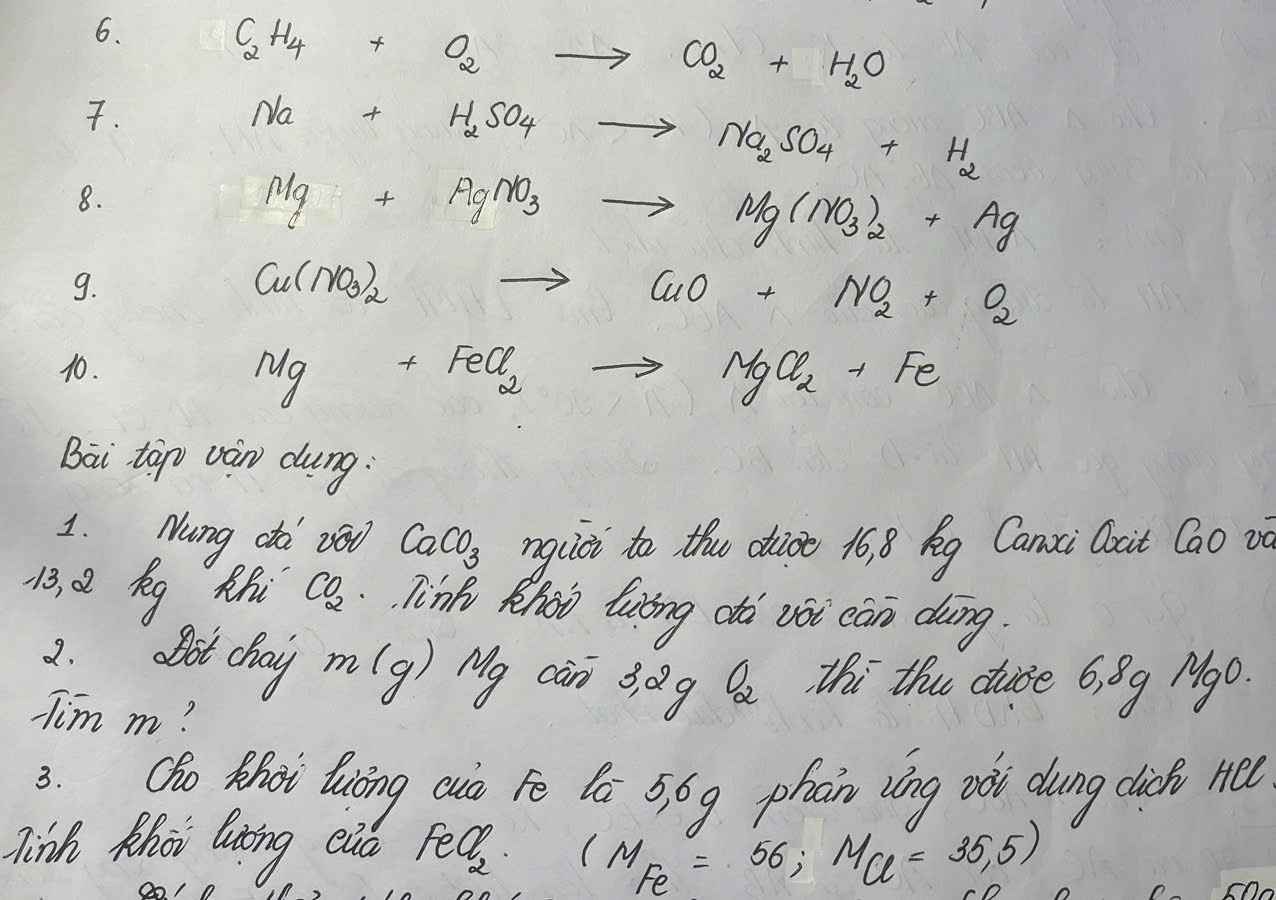 6. C₂H₄ + O₂ → CO₂ + H₂O
7. Na + H₂SO₄ → Na₂SO₄ + H₂
8. Mg + AgNO₃ → Mg(NO₃)₂ + Ag
9. Cu(NO₃)₂ → CuO + NO₂ + O₂
10. Mg + FeCl₂ → MgCl₂ + Fe
Bài tập vận dụng:
1. Nung đá vôi CaCO₃ người ta thu được 16,8 kg Canxi Oxit CaO và
13,2 kg khí CO₂. Tính khối lượng đá vôi cần dùng.
2. Đốt cháy m (g) Mg cần 3,2g O₂ thì thu được 6,8g MgO.
Tìm m?
3. Cho khối lượng của Fe là 5,6g phản ứng với dung dịch HCl.
Tính khối lượng của FeCl₂. (M_Fe = 56; M_Cl = 35,5)